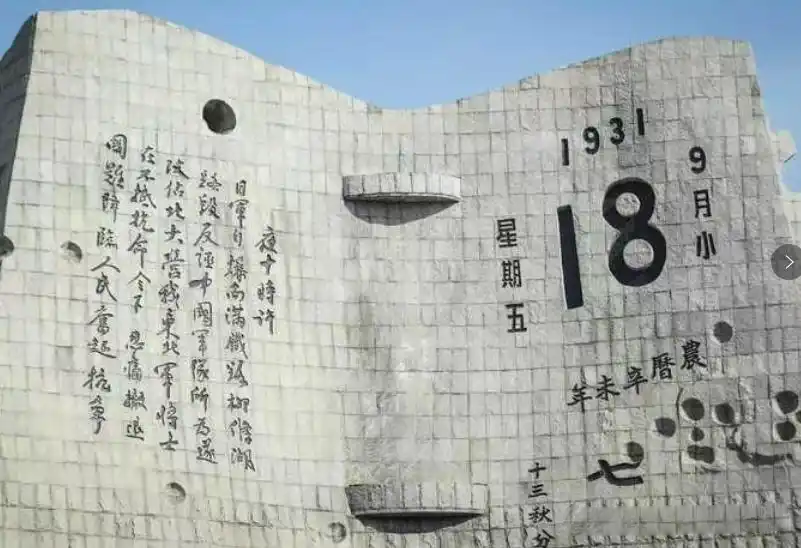 1931
9月小
18
星期五
農曆辛未年
七
十三秋分
夜十時許
日軍自爆南滿鐵路柳條湖
路段反誣中國軍隊所為遂
攻佔北大營我東北軍將士
在不抵抗命令下忍痛撤退
國難降臨人民奮起抗爭